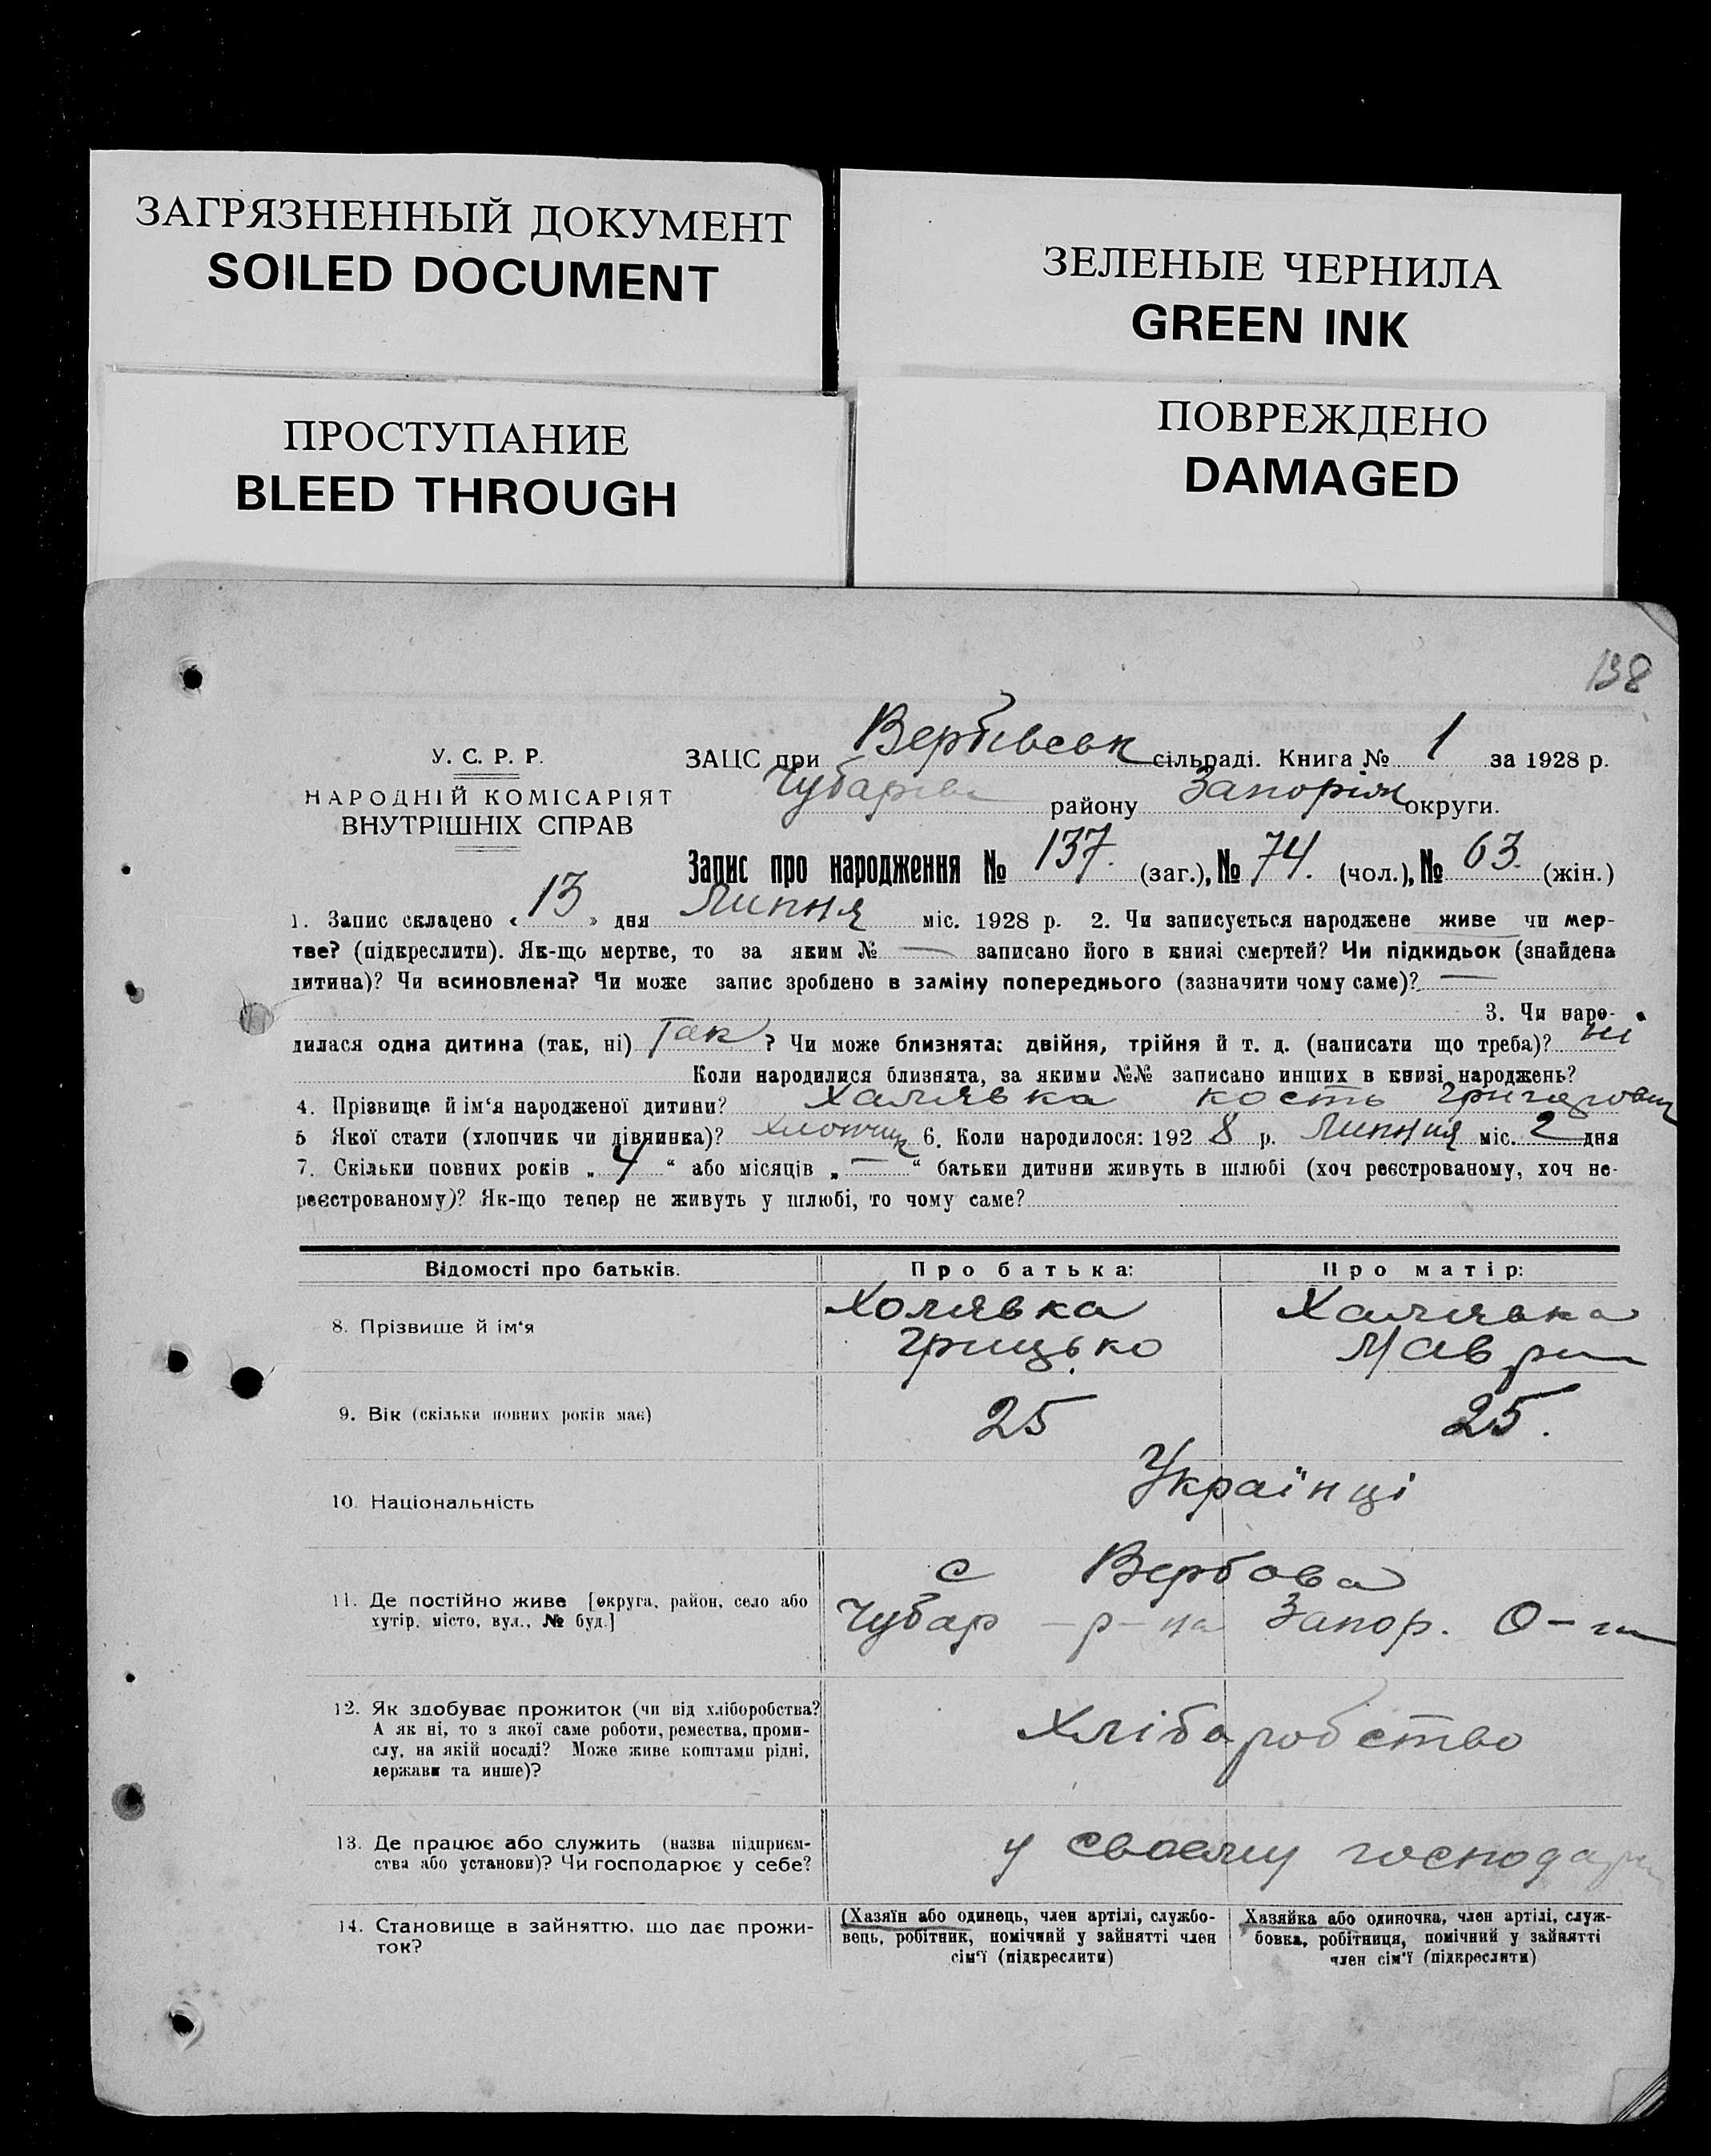 ЗАГРЯЗНЕННЫЙ ДОКУМЕНТ
SOILED DOCUMENT
ЗЕЛЕНЫЕ ЧЕРНИЛА
GREEN INK
ПРОСТУПАНИЕ
BLEED THROUGH
ПОВРЕЖДЕНО
DAMAGED
138
У. С. Р. Р.
НАРОДНІЙ КОМІСАРІЯТ
ВНУТРІШНІХ СПРАВ
ЗАЦС при Вербівськ сільраді. Книга № 1 за 1928 р.
Чубарів району Запоріж округи.
Запис про народження № 137. (заг.), № 74. (чол.), № 63. (жін.)
1. Запис складено « 13 » дня Липня міс. 1928 р. 2. Чи записується народжене живе чи мер-
тве? (підкреслити). Як-що мертве, то за яким № — записано його в книзі смертей? Чи підкидьок (знайдена
дитина)? Чи всиновлена? Чи може запис зроблено в заміну попереднього (зазначити чому саме)? —
3. Чи наро-
дилася одна дитина (так, ні) Так ? Чи може близнята: двійня, трійня й т. д. (написати що треба)? ні
Коли народилися близнята, за якими №№ записано инших в книзі народжень?
4. Прізвище й ім'я народженої дитини? Халявка Кость Григорович
5 Якої стати (хлопчик чи дівчинка)? хлопчик 6. Коли народилося: 192 8 р. Липня міс. 2 дня
7. Скільки повних років „ 4 “ або місяців „ — “ батьки дитини живуть в шлюбі (хоч реєстрованому, хоч не-
реєстрованому)? Як-що тепер не живуть у шлюбі, то чому саме?
Відомості про батьків. Про батька: Про матір:
8. Прізвище й ім'я Холявка Грицько Халявка Мавра
9. Вік (скільки повних років має) 25 25.
10. Національність Українці
11. Де постійно живе [округа, район, село або
хутір, місто, вул., № буд.]
с Вербова
Чубар – р-на Запор. О-ги
12. Як здобуває прожиток (чи від хліборобства?
А як ні, то з якої саме роботи, ремества, проми-
слу, на якій посаді? Може живе коштами рідні,
держави та инше)?
Хліборобство
13. Де працює або служить (назва підприєм-
ства або установи)? Чи господарює у себе?
у своєму господар
14. Становище в зайняттю, що дає прожи-
ток?
(Хазяїн або одинець, член артілі, службо-
вець, робітник, помічний у зайнятті член
сім'ї (підкреслити)
Хазяйка або одиночка, член артілі, служ-
бовка, робітниця, помічний у зайнятті
член сім'ї (підкреслити)